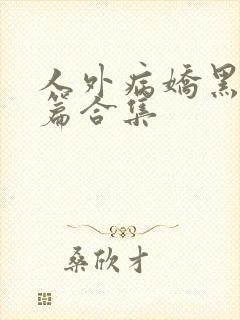 人外病娇黑
篇合集
桑欣才